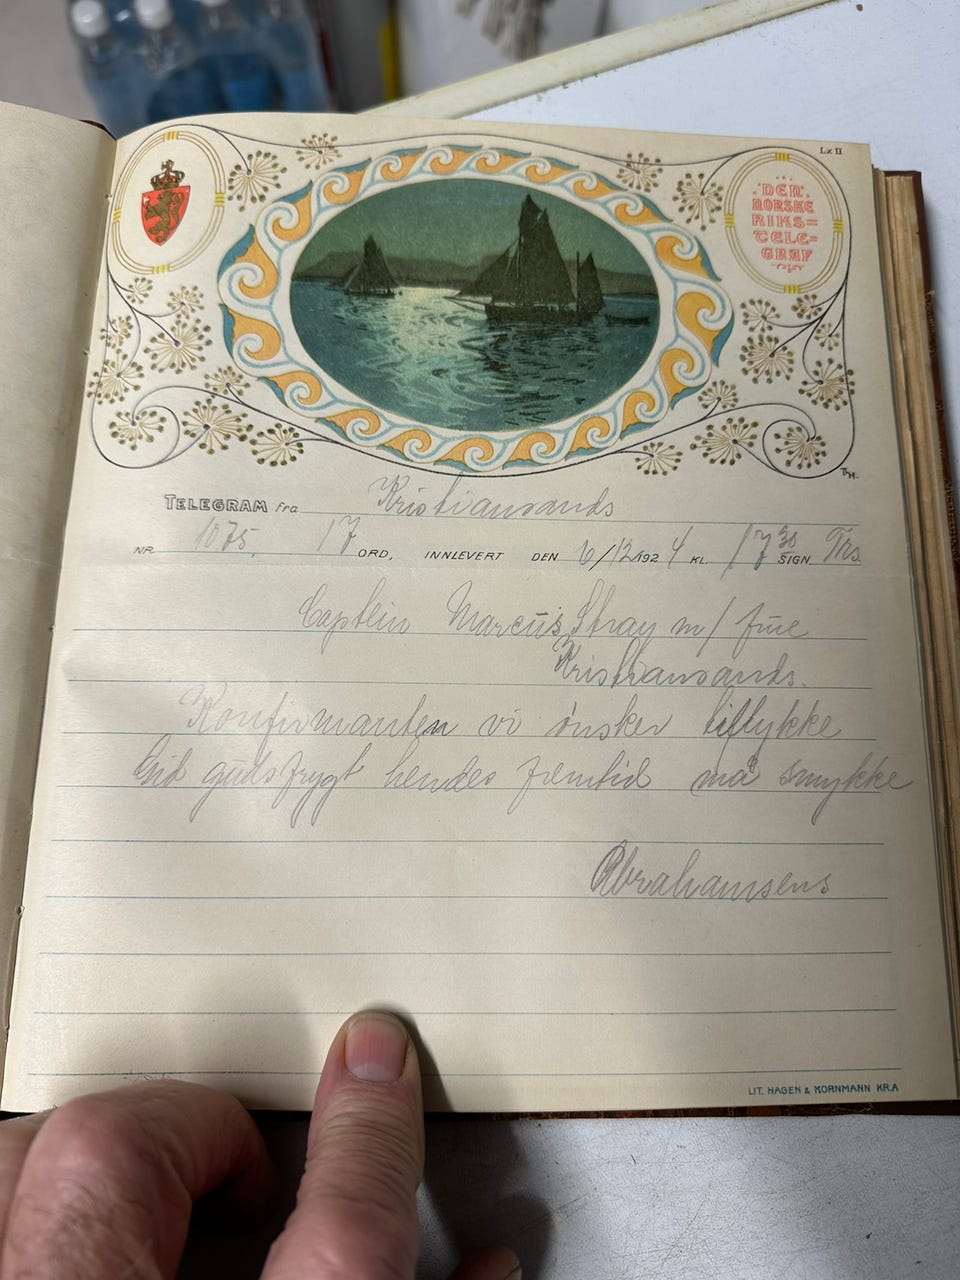 Lx II
DEN
NORSKE
RIKS=
TELE=
GRAF
TH.
TELEGRAM fra Kristiansands
NR 1075. 17 ORD, INNLEVERT DEN 6/12 1924 KL. 17 30 SIGN. Trs.
Captein Marcus Stray m/ frue
Kristiansands.
Konfirmanten vi ønsker tillykke
Gid gudsfrygt hendes fremtid må smykke
Abrahamsens
LIT. HAGEN & KORNMANN KR.A